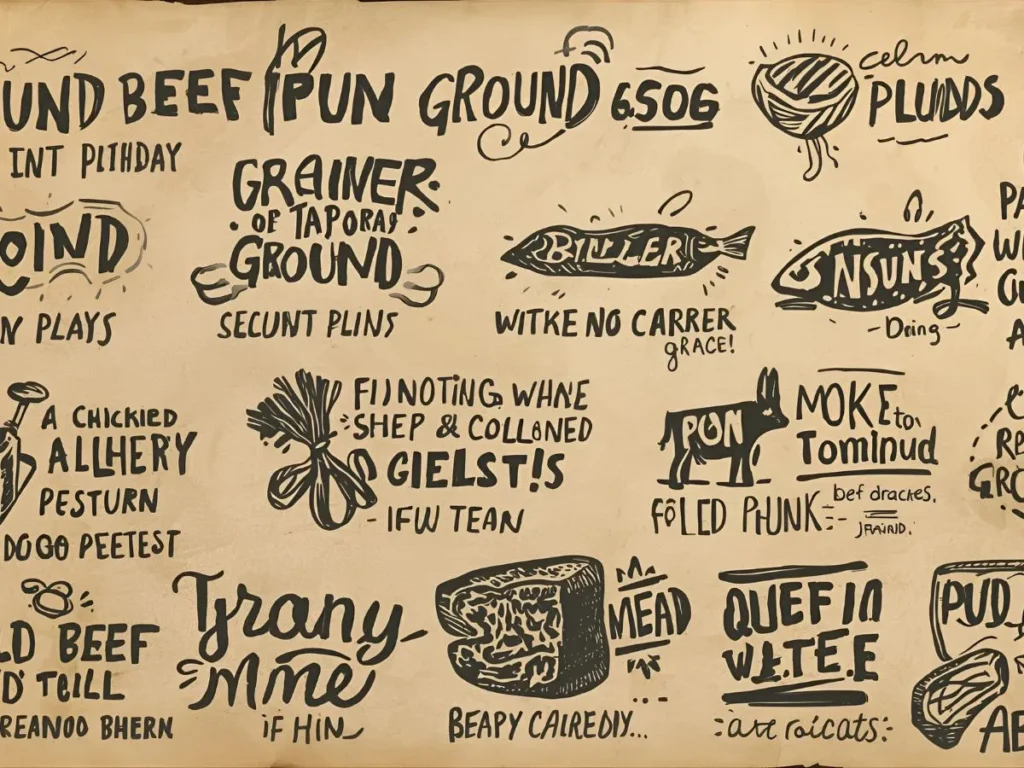 UND BEEF PUN GROUND 6.SOG
celnm
PLUNDDS
INT PITHDAY
GRAINER
OF TAPORAY
GROUND
SECUNT PLINS
OIND
N PLAYS
BILLER
WITKE NO CARRER
GRACE!
NSUNS
-Dring-
PA
W
A
A CHICKIED
ALLHERY
PESTURN
DOGO PEETEST
FIJNOTING WHNE
SHEP & COLLONED
GIELST!S
- IFW TEAN
PUN
MOKE to
Tominud
FOLED PHUNK
bef drackes.
RE
GRO
LD BEEF
D' TCILL
REANOO BHERN
Tyrany
Mme
IF HIN
MEAD
BEAPY CALREDIY...
QUEF IN
W.E.TE.E
:art roicats:
PUD
AE